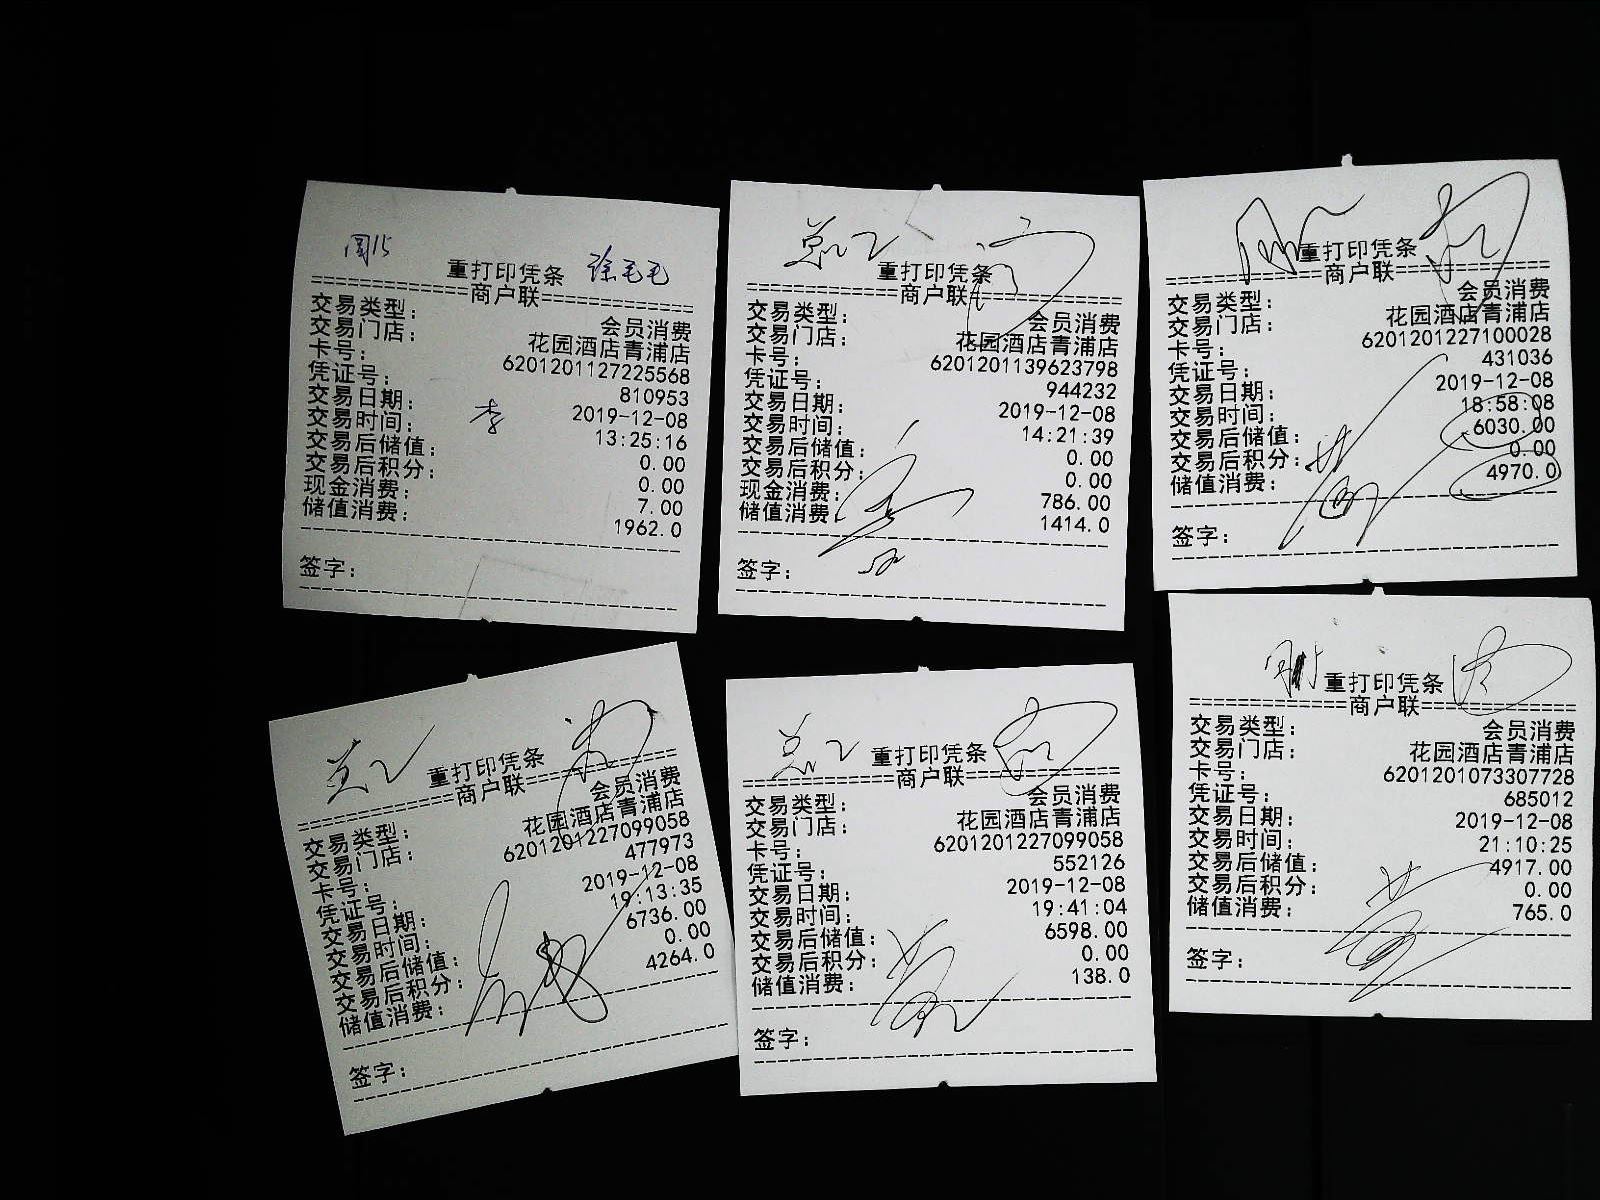 周15 徐毛毛
重打印凭条
==========商户联==========
交易类型： 会员消费
交易门店： 花园酒店青浦店
卡号： 6201201127225568
凭证号： 810953
交易日期： 2019-12-08
交易时间： 13:25:16
交易后储值： 0.00
交易后积分： 0.00
现金消费： 7.00
储值消费： 1962.0
签字：
李
总2
重打印凭条
==========商户联==========
交易类型： 会员消费
交易门店： 花园酒店青浦店
卡号： 6201201139623798
凭证号： 944232
交易日期： 2019-12-08
交易时间： 14:21:39
交易后储值： 0.00
交易后积分： 0.00
现金消费： 786.00
储值消费： 1414.0
签字：
重打印凭条
==========商户联==========
交易类型： 会员消费
交易门店： 花园酒店青浦店
卡号： 6201201227100028
凭证号： 431036
交易日期： 2019-12-08
交易时间： 18:58:08
交易后储值： 6030.00
交易后积分： 0.00
储值消费： 4970.0
签字：
总2
重打印凭条
==========商户联==========
交易类型： 会员消费
交易门店： 花园酒店青浦店
卡号： 6201201227099058
凭证号： 477973
交易日期： 2019-12-08
交易时间： 19:13:35
交易后储值： 6736.00
交易后积分： 0.00
储值消费： 4264.0
签字：
总2
重打印凭条
==========商户联==========
交易类型： 会员消费
交易门店： 花园酒店青浦店
卡号： 6201201227099058
凭证号： 552126
交易日期： 2019-12-08
交易时间： 19:41:04
交易后储值： 6598.00
交易后积分： 0.00
储值消费： 138.0
签字：
重打印凭条
==========商户联==========
交易类型： 会员消费
交易门店： 花园酒店青浦店
卡号： 6201201073307728
凭证号： 685012
交易日期： 2019-12-08
交易时间： 21:10:25
交易后储值： 4917.00
交易后积分： 0.00
储值消费： 765.0
签字：